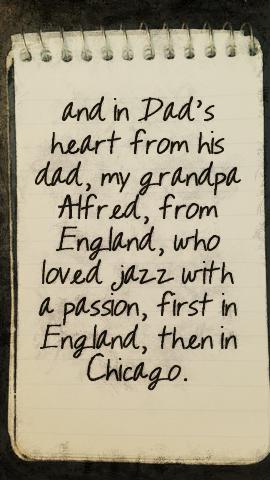 and in Dad's
heart from his
dad, my grandpa
Alfred, from
England, who
loved jazz with
a passion, first in
England, then in
Chicago.